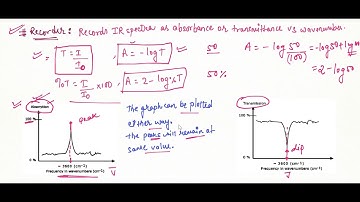 * Recorder: Records IR spectra as absorbance or transmittance vs wavenumber.
T = I/I₀ , A = -log T
%T = I/I₀ × 100 , A = 2 - log %T
50
50%
A = -log 50/(100) = -log50 + log100
= 2 - log 50
Absorption
100
0 %
peak
~ 3600 (cm⁻¹)
Frequency in wavenumbers (cm⁻¹)
ν̅
The graph can be plotted
either way.
The peaks will remain at
same value.
Transmission
100 %
0 %
dip
~ 3600 (cm⁻¹)
Frequency in wavenumbers (cm⁻¹)
ν̅